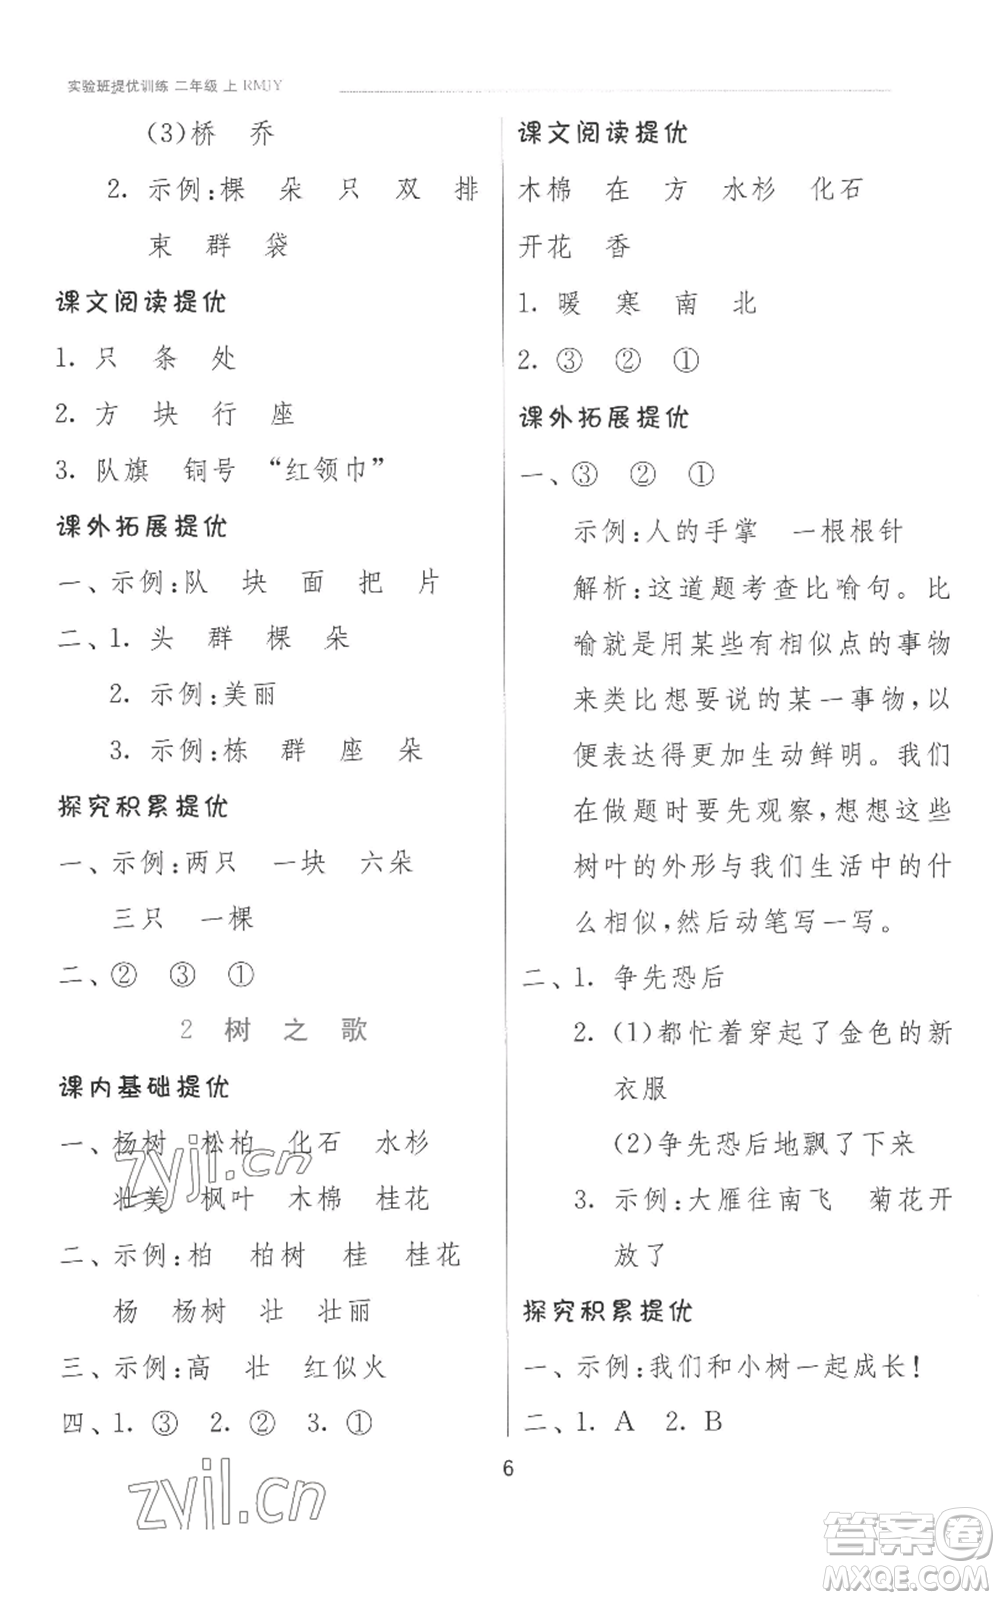 实验班提优训练 二年级 上 RMJY
(3)桥 乔
2. 示例:棵 朵 只 双 排
束 群 袋
课文阅读提优
1. 只 条 处
2. 方 块 行 座
3. 队旗 铜号 “红领巾”
课外拓展提优
一、示例:队 块 面 把 片
二、1. 头 群 棵 朵
2. 示例:美丽
3. 示例:栋 群 座 朵
探究积累提优
一、示例:两只 一块 六朵
三只 一棵
二、② ③ ①
2 树 之 歌
课内基础提优
一、杨树 松柏 化石 水杉
壮美 枫叶 木棉 桂花
二、示例:柏 柏树 桂 桂花
杨 杨树 壮 壮丽
三、示例:高 壮 红似火
四、1. ③ 2. ② 3. ①
课文阅读提优
木棉 在 方 水杉 化石
开花 香
1. 暖 寒 南 北
2. ③ ② ①
课外拓展提优
一、③ ② ①
示例:人的手掌 一根根针
解析:这道题考查比喻句。比
喻就是用某些有相似点的事物
来类比想要说的某一事物,以
便表达得更加生动鲜明。我们
在做题时要先观察,想想这些
树叶的外形与我们生活中的什
么相似,然后动笔写一写。
二、1. 争先恐后
2. (1)都忙着穿起了金色的新
衣服
(2)争先恐后地飘了下来
3. 示例:大雁往南飞 菊花开
放了
探究积累提优
一、示例:我们和小树一起成长!
二、1. A 2. B
6
zyjl.cn
zyjl.cn
答案圈
MXQE.COM